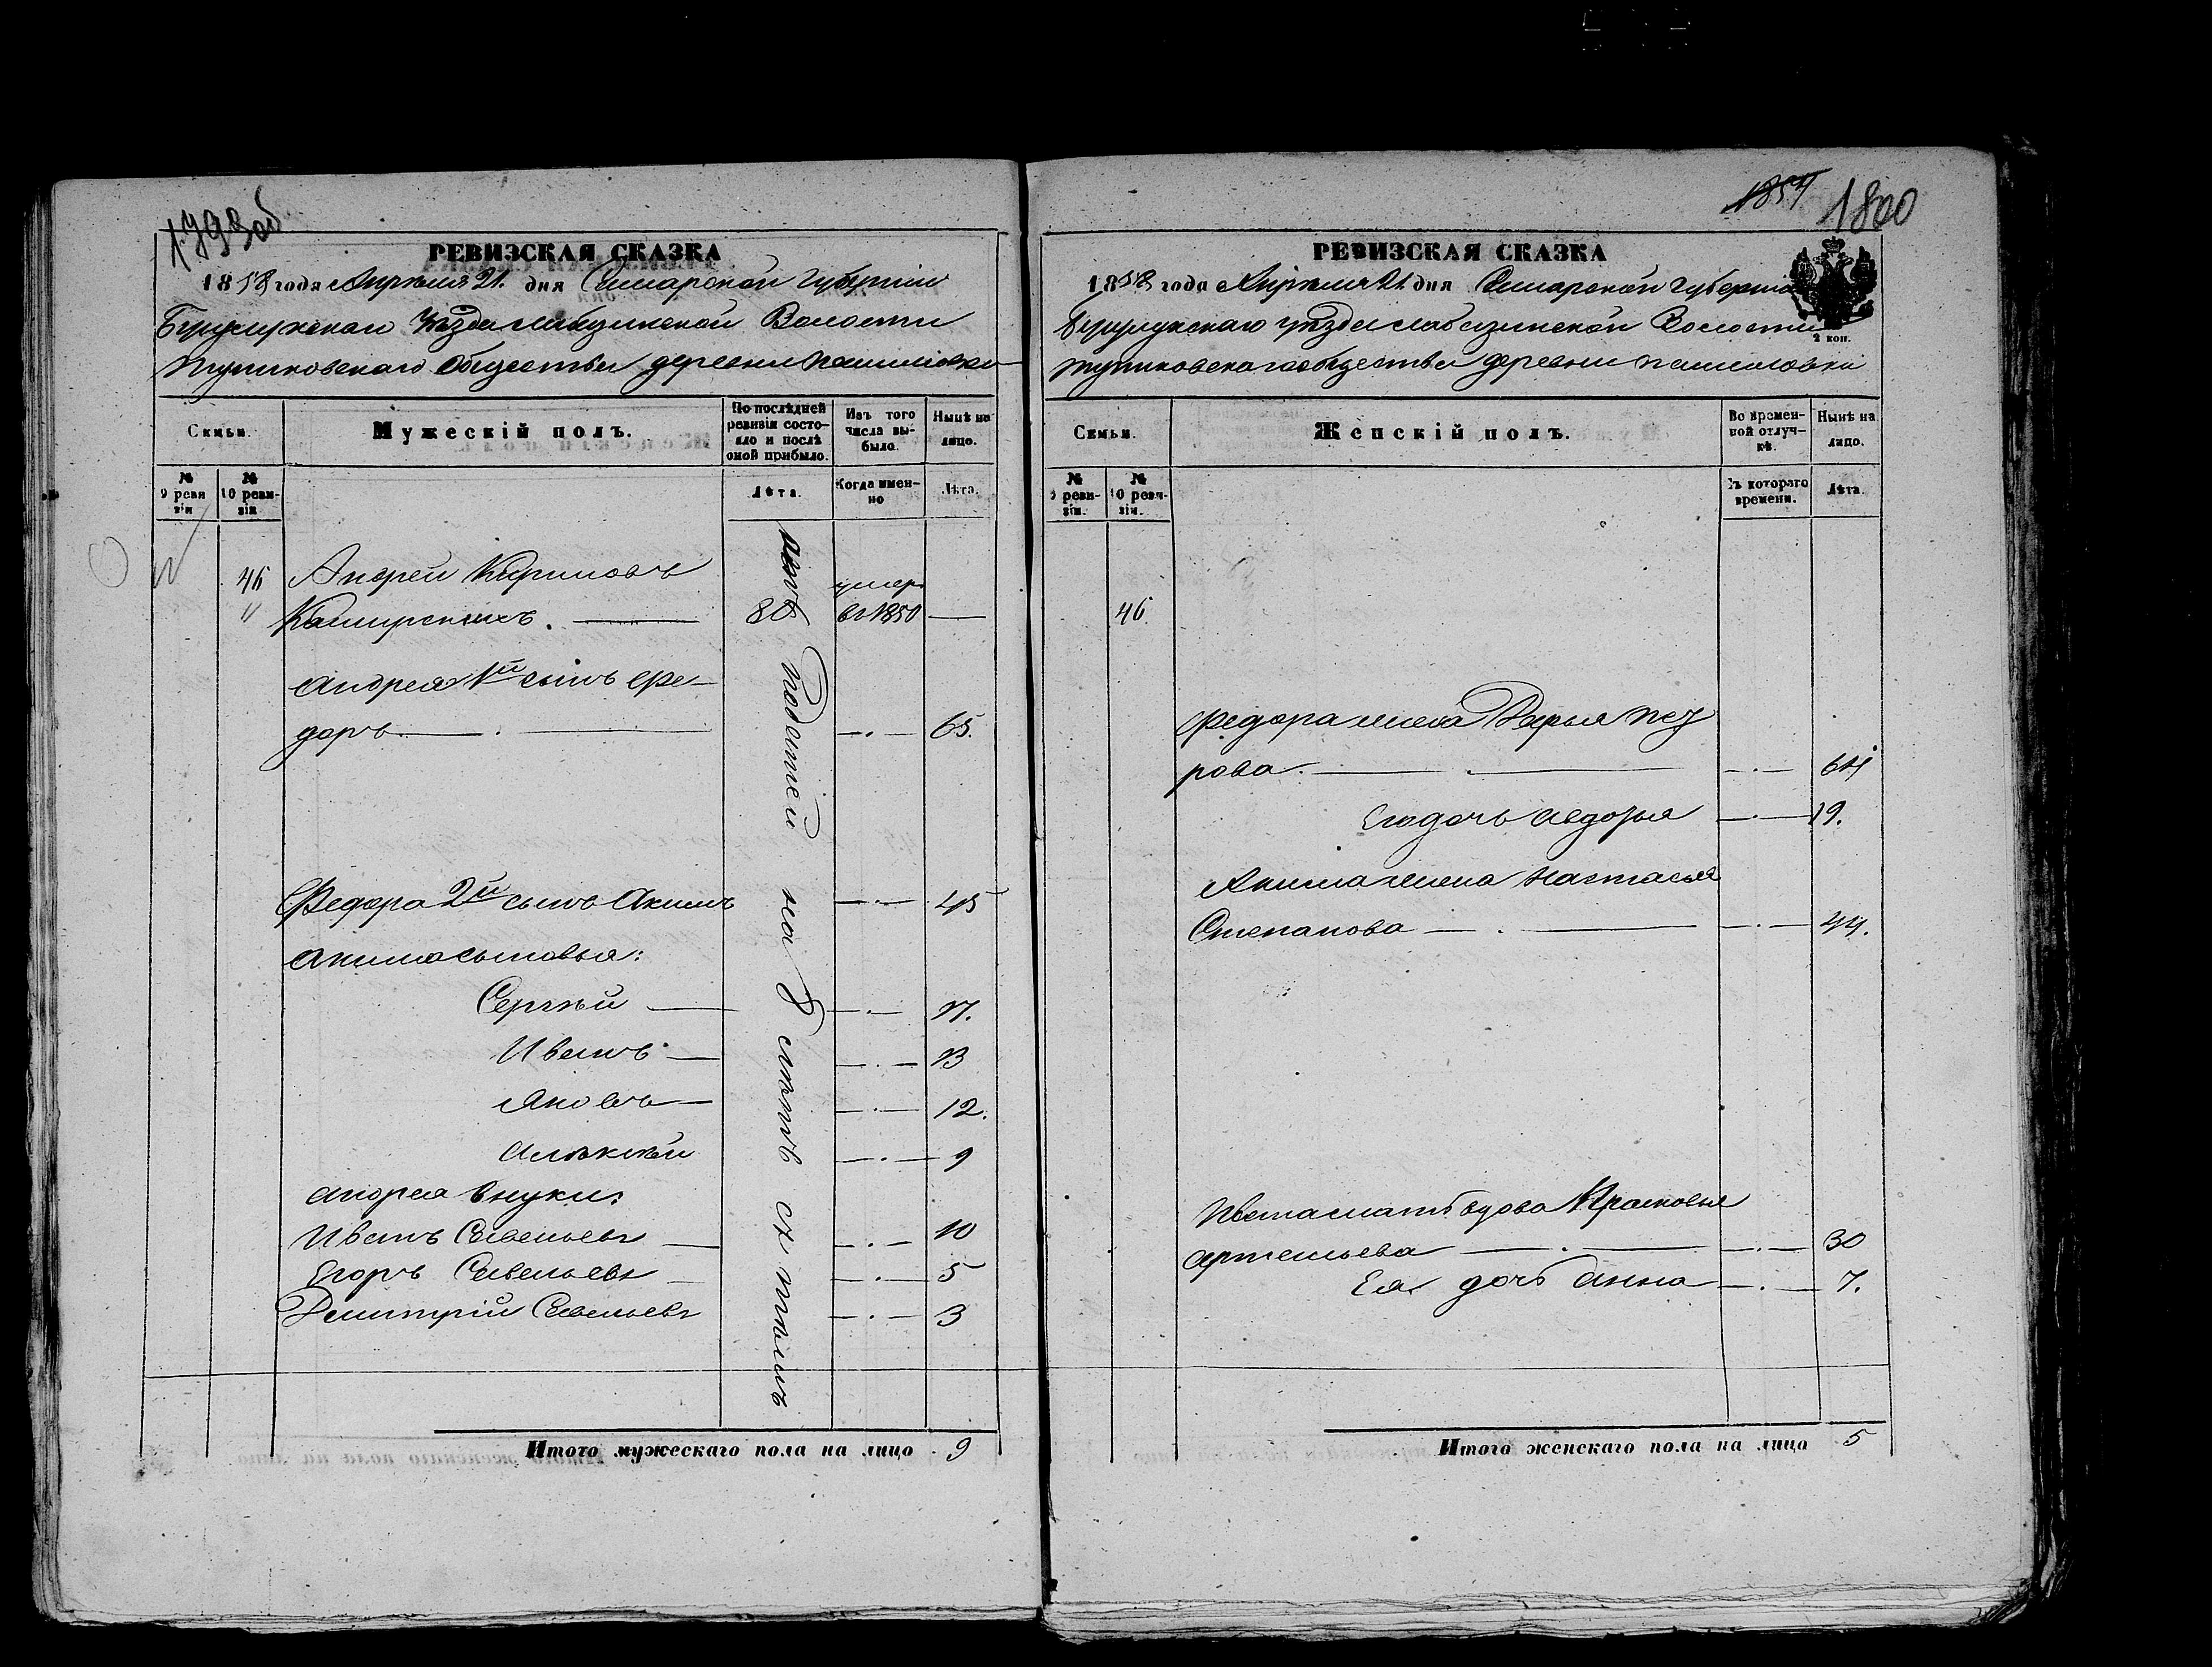 1799об
РЕВИЗСКАЯ СКАЗКА
1858 года Апреля 21. дня Самарской Губернии
Бузулукскаго Уезда Лабазинской Волости
общества деревни
Семьи.
Мужескій полъ.
По послѣдней ревизіи состояло и послѣ оной прибыло.
Изъ того числа выбыло.
Нынѣ на лицо.
№ 9 ревизіи
№ 10 ревизіи
Лѣта.
Когда именно
Лѣта.
46 Андрей
Каширскихъ. 80 умер въ 1850
Андрея 1й сынъ Фе-
доръ 65.
Федора 2й сынъ Акимъ 45
Акима сыновья:
Сергѣй 17.
Иванъ 13
Яковъ 12.
Алѣксѣй 9
Андрея внуки:
Иванъ Савельевъ 10
Егоръ Савельевъ 5
Дмитрій Савельевъ 3
податей на 8 лѣтъ съ тѣмъ
Итого мужескаго пола на лицо 9
1857 1800
РЕВИЗСКАЯ СКАЗКА
1858 года Апреля 21 дня Самарской Губернии
2 коп.
Бузулукскаго уезда Лабазинской Волости
общества деревни
Семьи.
Женскій полъ.
Во временной отлучкѣ.
Нынѣ на лицо.
№ 9 ревизіи.
№ 10 ревизіи.
Съ котораго времени.
Лѣта.
46.
Федора жена Дарья
рова. 64
Его дочь Авдотья 19.
Акима жена Настасья
Степанова 44.
Ивана мать вдова Прасковья
Артемьева 30
Ея дочь Анна 7.
Итого женскаго пола на лицо 5